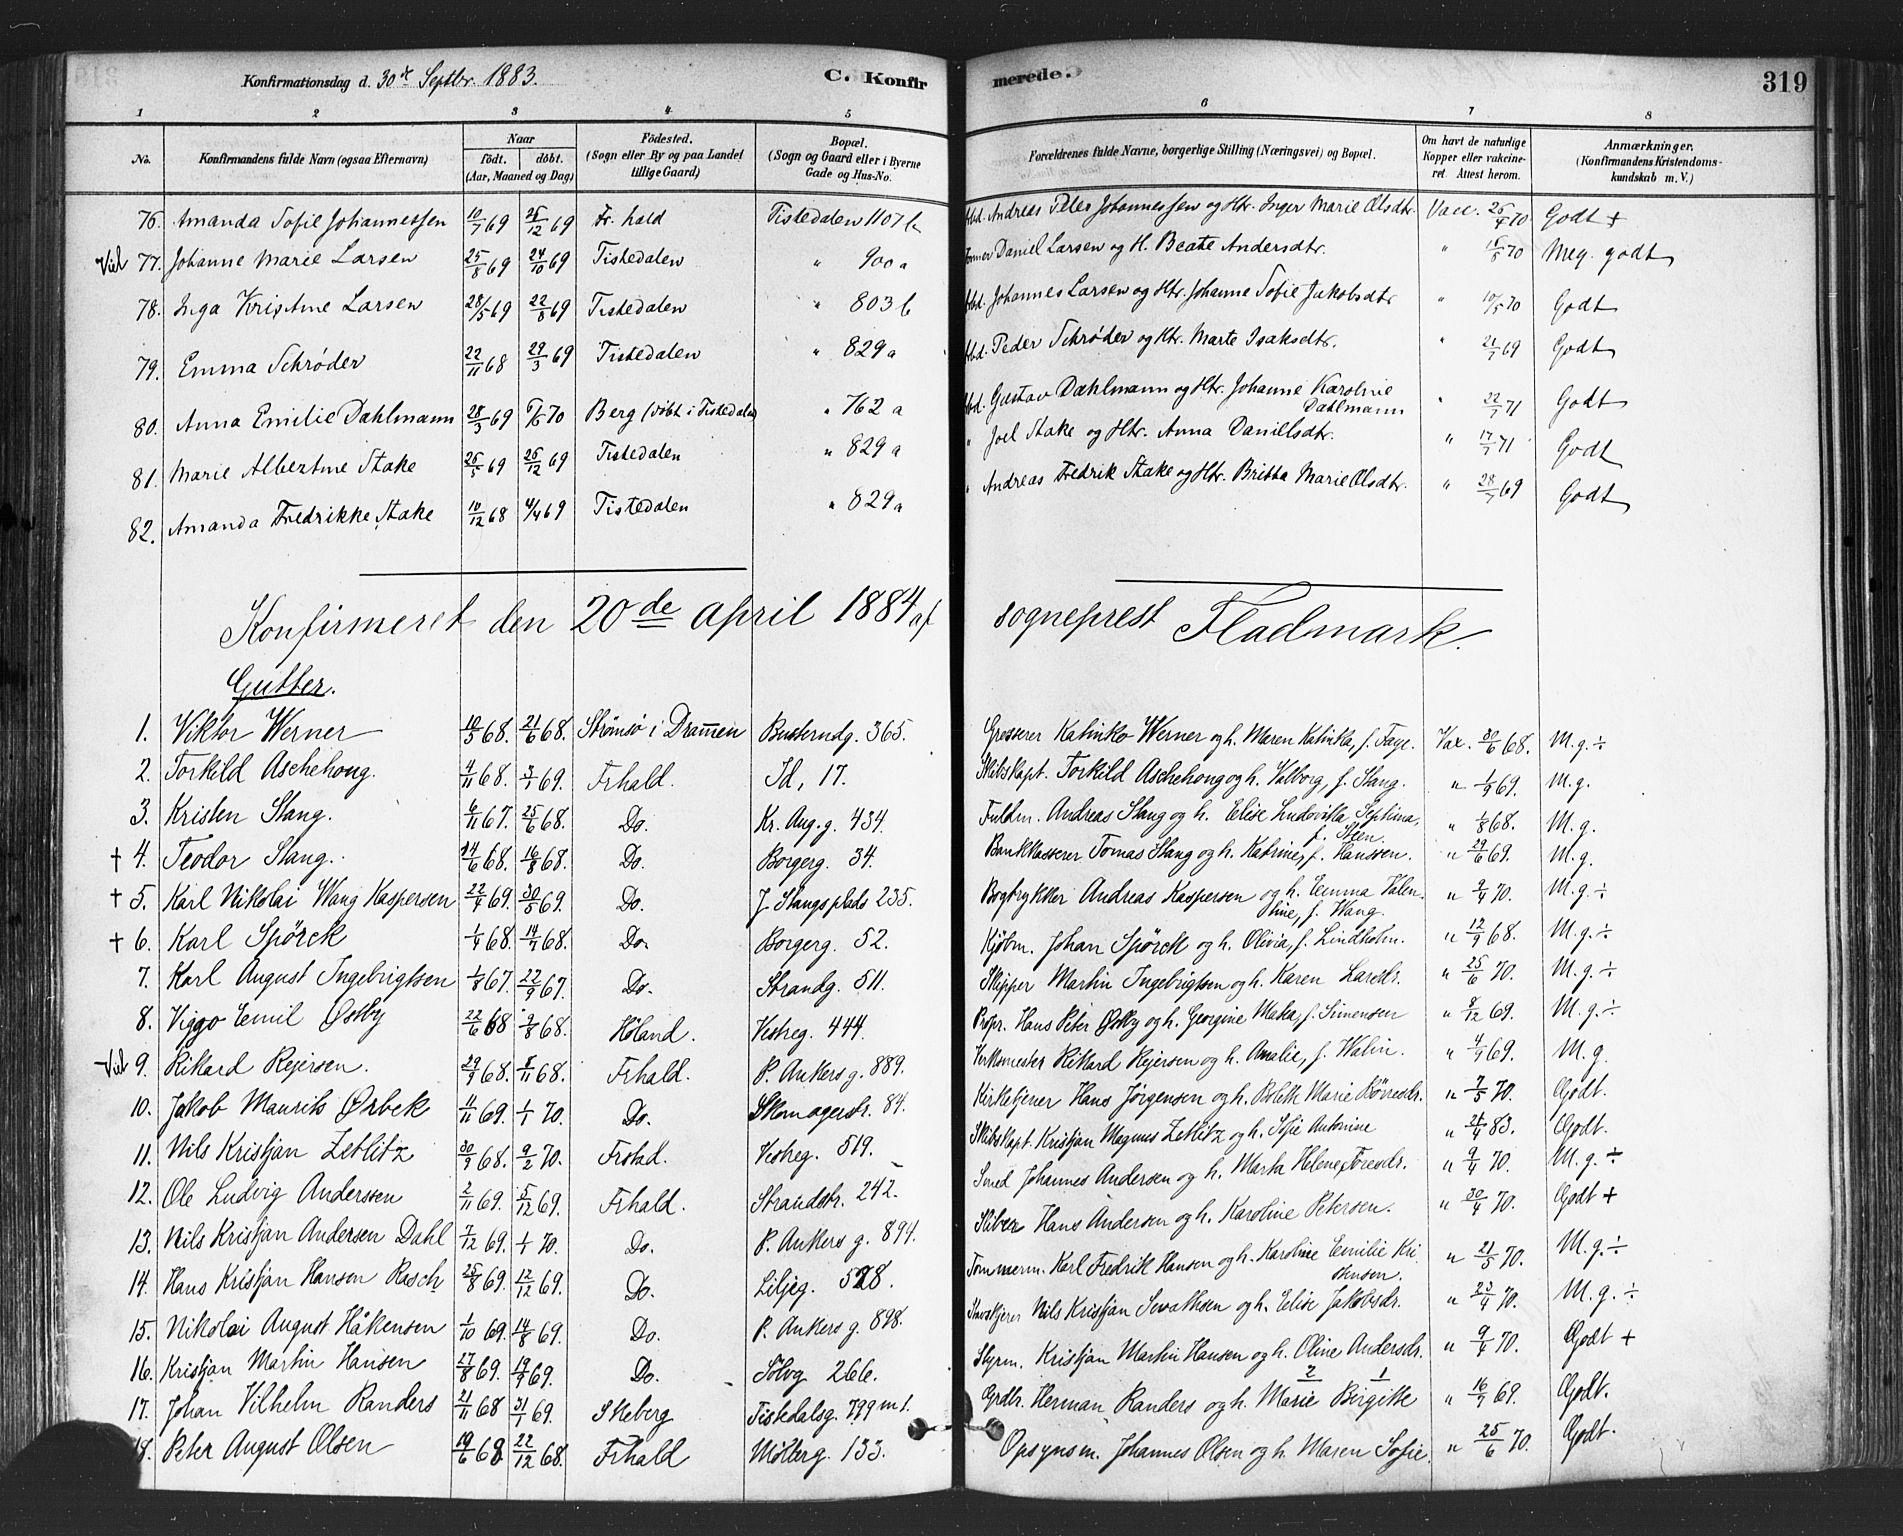 Konfirmationsdag d. 30te Septbr. 1883. C. Konfirmerede. 319
1 2 3 4 5 6 7 8
No. Konfirmandens fulde Navn (ogsaa Efternavn) Naar født. døbt. (Aar, Maaned og Dag) Fødested. (Sogn eller By og paa Landet tillige Gaard) Bopæl. (Sogn og Gaard eller i Byerne Gade og Hus-No. Forældrenes fulde Navne, borgerlige Stilling (Næringsvei) og Bopæl. Om havt de naturlige Kopper eller vakcineret. Attest herom. Anmærkninger. (Konfirmandens Kristendomskundskab m. V.)
76. Amanda Sofie Johannessen 10/7 69 26/12 69 Fr. hald Tistedalen 1107 b Abd. Andreas Peter Johannessen og Htr. Inger Marie Olsdtr. Vacc. 26/4 70 Godt +
Viel 77. Johanne Marie Larsen 25/8 69 24/10 69 Tistedalen " 900 a Daniel Larsen og H. Beate Andersdtr. " 15/5 70 Meg. godt
78. Inga Kristine Larsen 28/5 69 22/8 69 Tistedalen " 803 b Abd. Johannes Larsen og Htr. Johanne Sofie Jakobsdtr " 10/5 70 Godt
79. Emma Schrøder 22/11 68 29/3 69 Tistedalen " 829 a Abd. Peder Schrøder og Htr. Marte Isaksdtr. " 21/7 69 Godt
80. Anna Emilie Dahlmann 28/3 69 6/6 70 Berg (døbt i Tistedalen) " 762 a Abd. Gustav Dæhlmann og Htr. Johanne Karoline Dæhlmann " 22/7 71 Godt
81. Marie Albertine Stake 26/5 69 26/12 69 Tistedalen " 829 a " Joel Stake og Htr. Anna Danielsdtr. " 17/7 71 Godt
82. Amanda Fredrikke Stake 10/12 68 4/4 69 Tistedalen " 829 a " Andreas Fredrik Stake og Htr. Britta Marie Olsdtr. " 28/7 69 Godt
Konfirmeret den 20de april 1884 af sogneprest Fladmark.
Gutter.
1. Viktor Werner 10/5 68. 21/6 68. Strømsø i Drammen Busterudg. 365. Grosserer Katinko Werner og h. Maren Katinka, f. Faye. Vax. 30/6 68. M. g. ÷
2. Torkild Aschehoug. 4/11 68. 3/1 69. Frhald. Id, 17. Skibskapt. Torkild Aschehoug og h. Valborg, f. Stang. " 1/5 69. M. g.
3. Kristen Stang. 6/11 67. 25/6 68. Do. Kr. Aug. g. 434. Fuldm. Andreas Stang og h. Elise Ludovika Septima, f. Steen. " 1/8 68. M. g.
+ 4. Teodor Stang. 14/6 68. 16/8 68. Do. Borgerg. 34. Bankkasserer Tomas Stang og h. Katrine, f. Hanssen. " 29/6 69. M. g.
+ 5. Karl Nikolai Wang Kaspersen 22/4 69. 30/5 69. Do. J. Stangsplads 235. Bogtrykker Andreas Kaspersen og h. Emma Valentine, f. Wang. " 9/4 70. M. g. ÷
+ 6. Karl Spörck 1/4 68. 14/7 68. Do. Borgerg. 52. Kjøbm. Johan Spörck og h. Olivia, f. Lindholm. " 12/9 68. M. g. ÷
7. Karl August Ingebrigtsen 1/8 67. 22/9 67. Do. Strandg. 511. Skipper Martin Ingebrigtsen og h. Karen Larsdr. " 25/6 70. M. g. ÷
8. Viggo Emil Østby 22/6 68. 9/8 68. Høland. Vestreg. 444. Propr. Hans Peter Østby og h. Georgine Maka, f. Simensen " 8/12 69. M. g. ÷
Viel 9. Rikard Rejersen. 29/9 68. 8/11 68. Frhald. P. Ankers g. 889. Verksmester Rikard Rejersen og h. Amalie, f. Walin. " 4/9 69. M. g.
10. Jakob Maurits Ørbek 11/11 69. 1/1 70. Do. Skomagerstr. 84. Kirketjener Hans Jørgensen og h. Bolette Marie Børresdr. " 7/5 70. Godt.
11. Nils Kristjan Zetlitz 30/9 68. 9/2 70. Frstad. Vestreg. 519. Skibskapt. Kristjan Magnus Zetlitz og h. Sofie Antonine " 21/4 83. Godt.
12. Ole Ludvig Andersen 2/11 69. 5/12 69. Frhald. Strandstr. 242. Smed Johannes Andersen og h. Marta Helene Toresdr. " 9/4 70. M. g. ÷
13. Nils Kristjan Andersen Dahl 7/12 69. 1/1 70. Do. P. Ankers g. 894. Sliber Hans Andersen og h. Karoline Petersen. " 30/4 70. Godt +
14. Hans Kristjan Hansen Rasch 25/8 69. 12/12 69. Do. Liljeg. 528. Tømmerm. Karl Fredrik Hansen og h. Karoline Emilie Kristensen. " 21/5 70. M. g. ÷
15. Nikolai August Håkensen 1/10 69. 14/8 69. Do. P. Ankers g. 898. Nils Kristjan og h. Elise Jakobsdr. " 23/4 70. M. g. ÷
16. Kristjan Martin Hansen 27/8 69. 19/9 69. Do. Sølvg 266. Styrm. Kristjan Martin Hansen og h. Oline Andersdr. " 9/4 70. Godt +
17. Johan Vilhelm Randers 21/11 68 31/1 69. Skeberg Tistedalsg. 799 m 1. Grdbr. Herman Randers og h. Marie 2 Birgitte 1 " 16/7 69. Godt.
18. Peter August Olsen 19/6 68 22/12 68. Frhald Mølberg. 133. Opsynsm. Johannes Olsen og h. Maren Sofie. " 25/6 70. Godt.